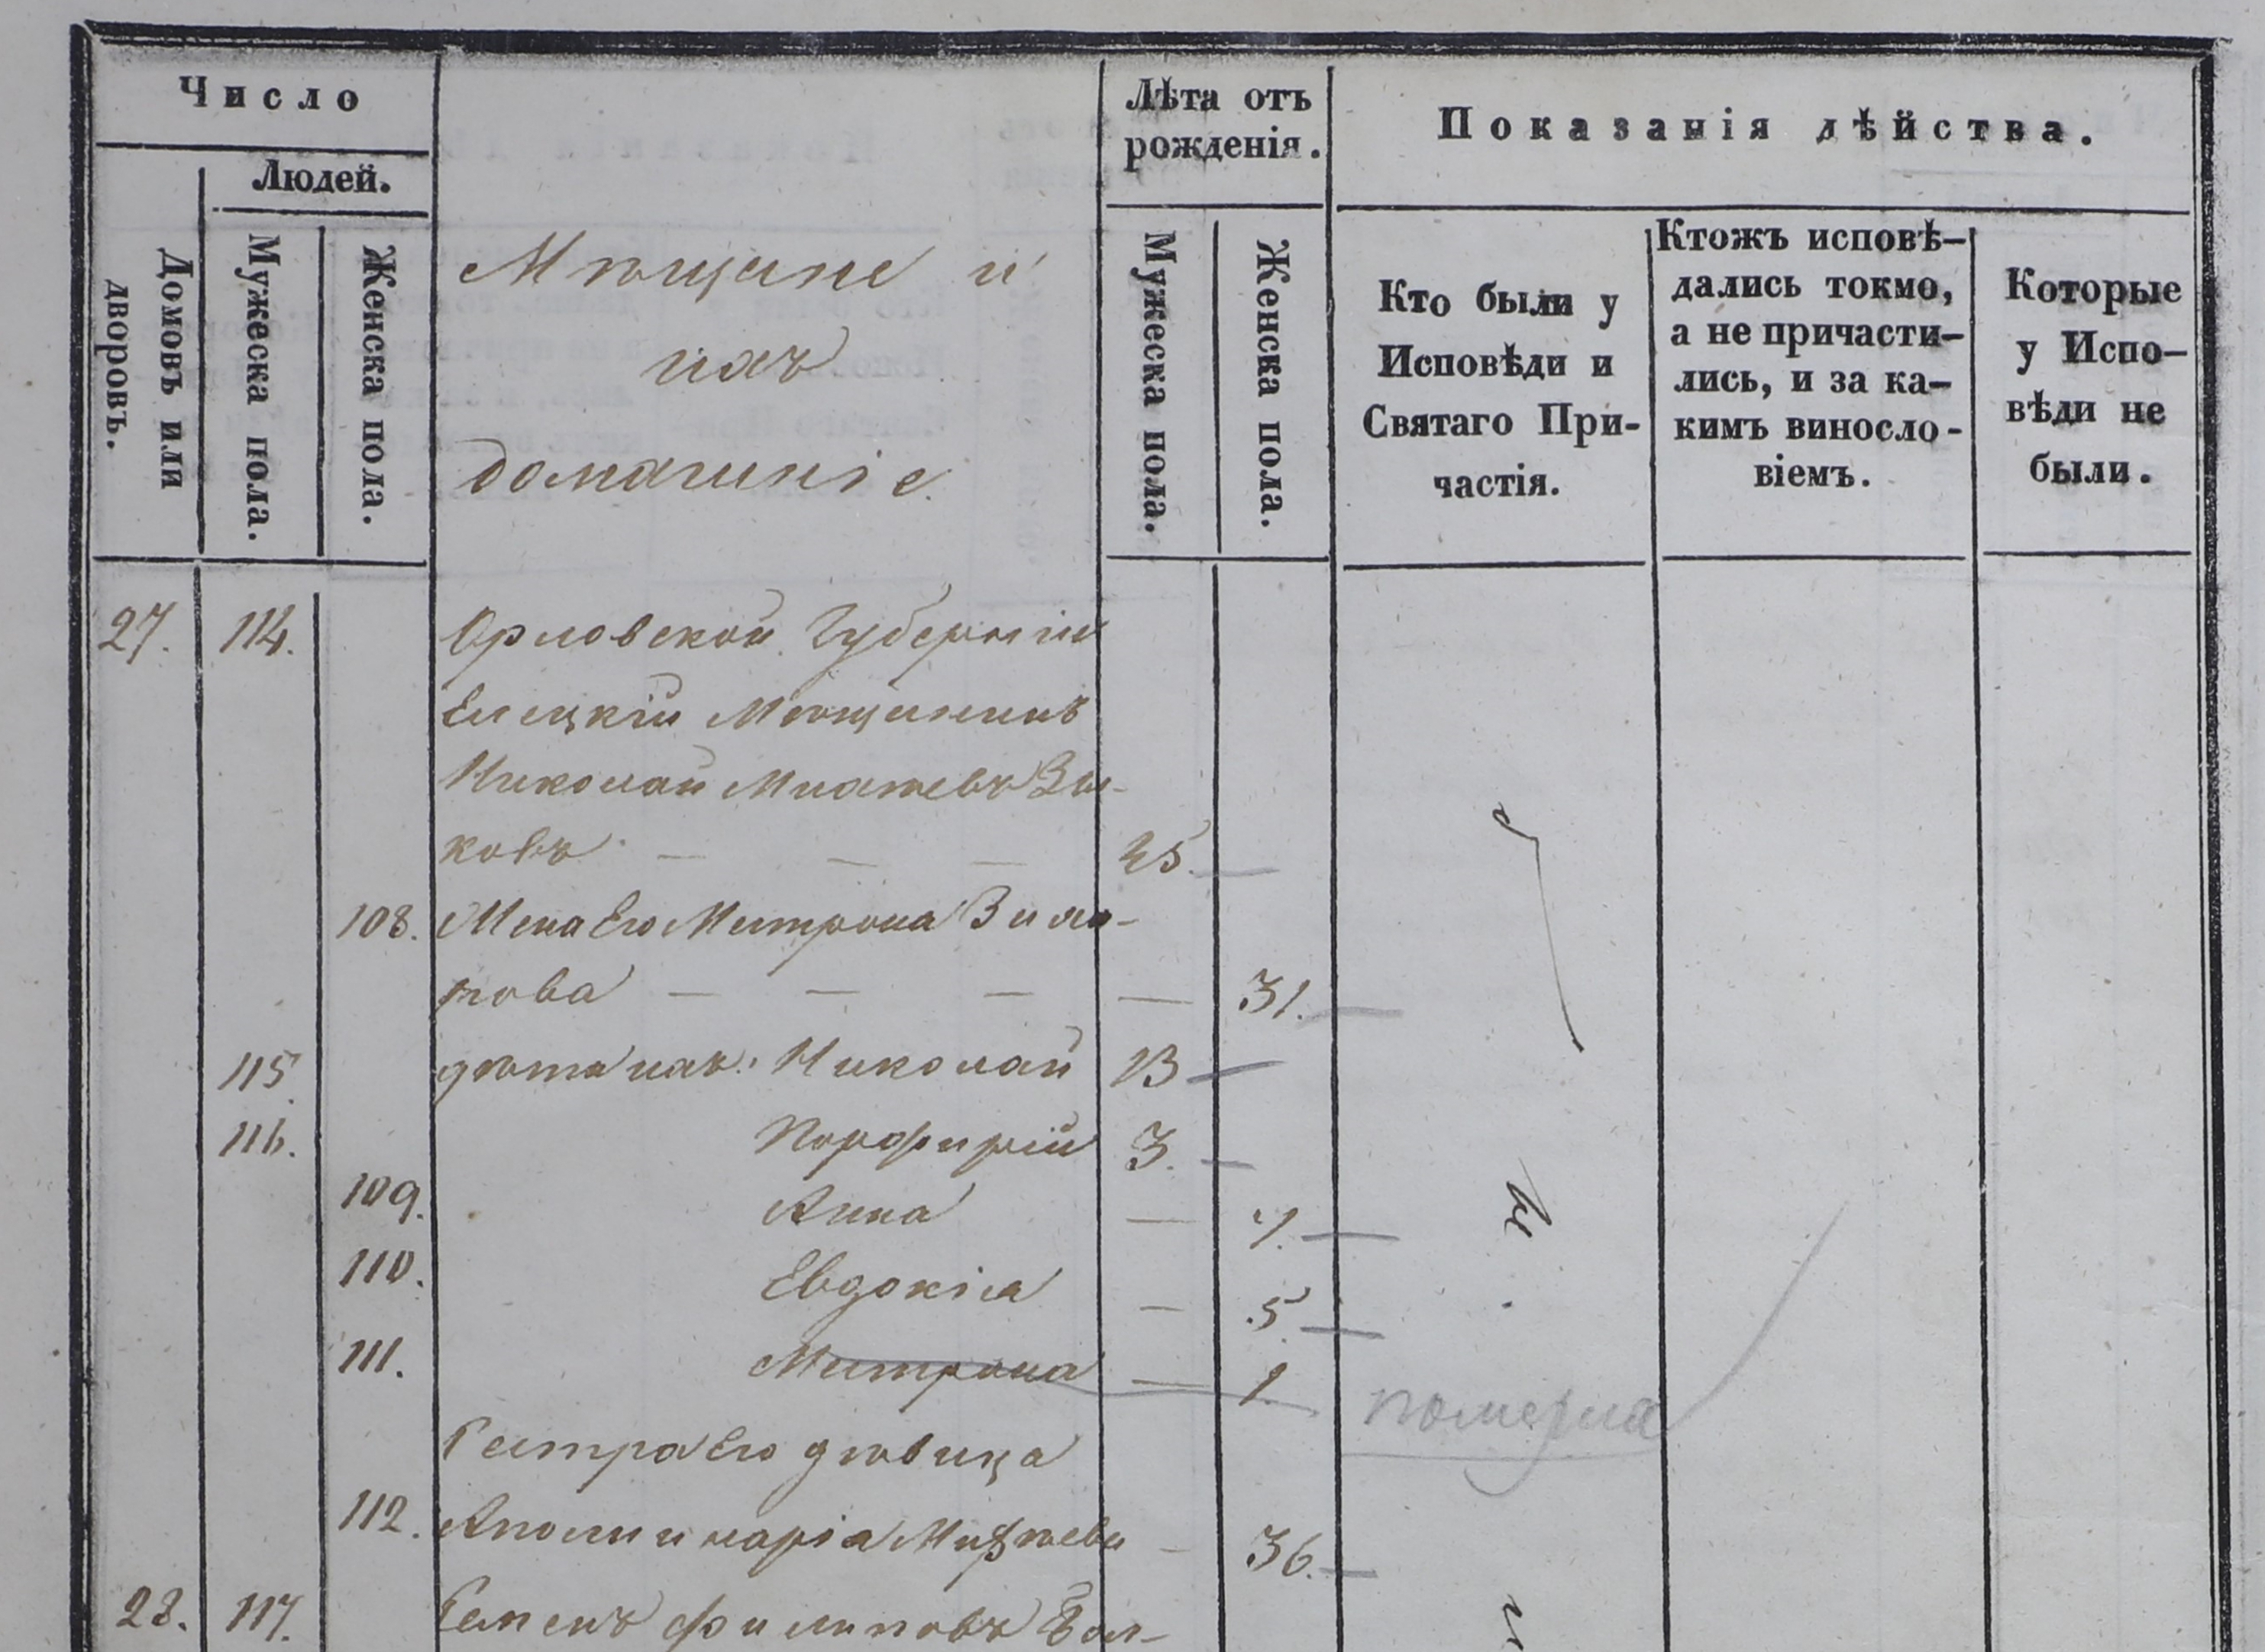 Число
Людей.
Домовъ или
дворовъ.
Мужеска пола.
Женска пола.
Мѣщане и
ихъ
домашніе.
Лѣта отъ
рожденія.
Мужеска пола.
Женска пола.
Показанія дѣйства.
Кто были у
Исповѣди и
Святаго При-
частія.
Ктожъ исповѣ-
дались токмо,
а не причасти-
лись, и за ка-
кимъ винсло-
віемъ.
Которые
у Испо-
вѣди не
были.
27. 114. Орловской Губерніи
Елецкій Мѣщанинъ
Николай
ковъ — — — 35. —
108. Жена Его Матрона
нова — — — — 31. —
115. дѣти ихъ: Николай 13 —
116. Порфирій 3. —
109. Анна — 7. —
110. Евдокіа — 5. —
111. Матрона — 1. померла
Сестра Его дѣвица
112. 36. —
28. 117. Семенъ Филиповъ